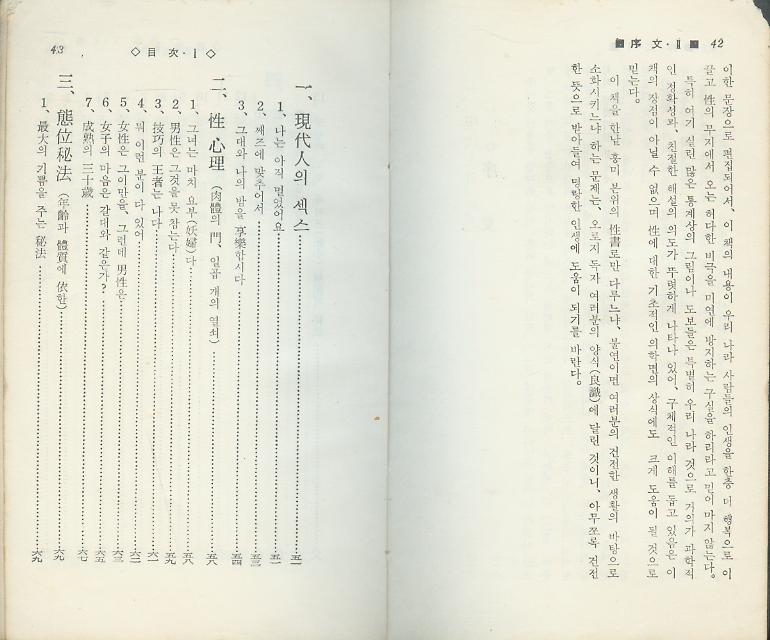 ▣ 序 文·Ⅱ ▣ 42
이한 문장으로 편집되어서、이 책의 내용이 우리 나라 사람들의 인생을 한층 더 행복으로 이
끌고 性의 무지에서 오는 허다한 비극을 미연에 방지하는 구실을 하리라고 믿어 마지 않는다。
특히 여기 실린 많은 통계상의 그림이나 도보들은 특별히 우리 나라 것으로 거의가 과학적
인 정확성과、친절한 해설의 의도가 뚜렷하게 나타나 있어、구체적인 이해를 돕고 있음은 이
책의 장점이 아닐 수 없으며 性에 대한 기초적인 의학면의 상식에도 크게 도움이 될 것으로
믿는다。
이 책을 한낱 흥미 본위의 性書로만 다루느냐、불연이면 여러분의 건전한 생활의 바탕으로
소화시키느냐 하는 문제는、오로지 독자 여러분의 양식(良識)에 달린 것이니、아무쪼록 건전
한 뜻으로 받아들여 명랑한 인생에 도움이 되기를 바란다。
43 ◇ 目 次·Ⅰ ◇
一、現代人의 섹스……五一
1、나는 아직 멀었어요……五一
2、째즈에 맞추어서……五三
3、그대와 나의 밤을 享樂합시다……五四
二、性 心理 (肉體의 門、일곱 개의 열쇠)……五八
1、그녀는 마치 요부(妖婦)다……五八
2、男性은 그것을 못 참는다……五九
3、技巧의 王者는 나다……六一
4、뭐 이런 분이 다 있어……六二
5、女性은 그이만을、그런데 男性은……六三
6、女子의 마음은 갈대와 같은가?……六五
7、成熟의 三十歲……六七
三、態位秘法 (年齡과 體質에 依한)……六九
1、最大의 기쁨을 주는 秘法……六九